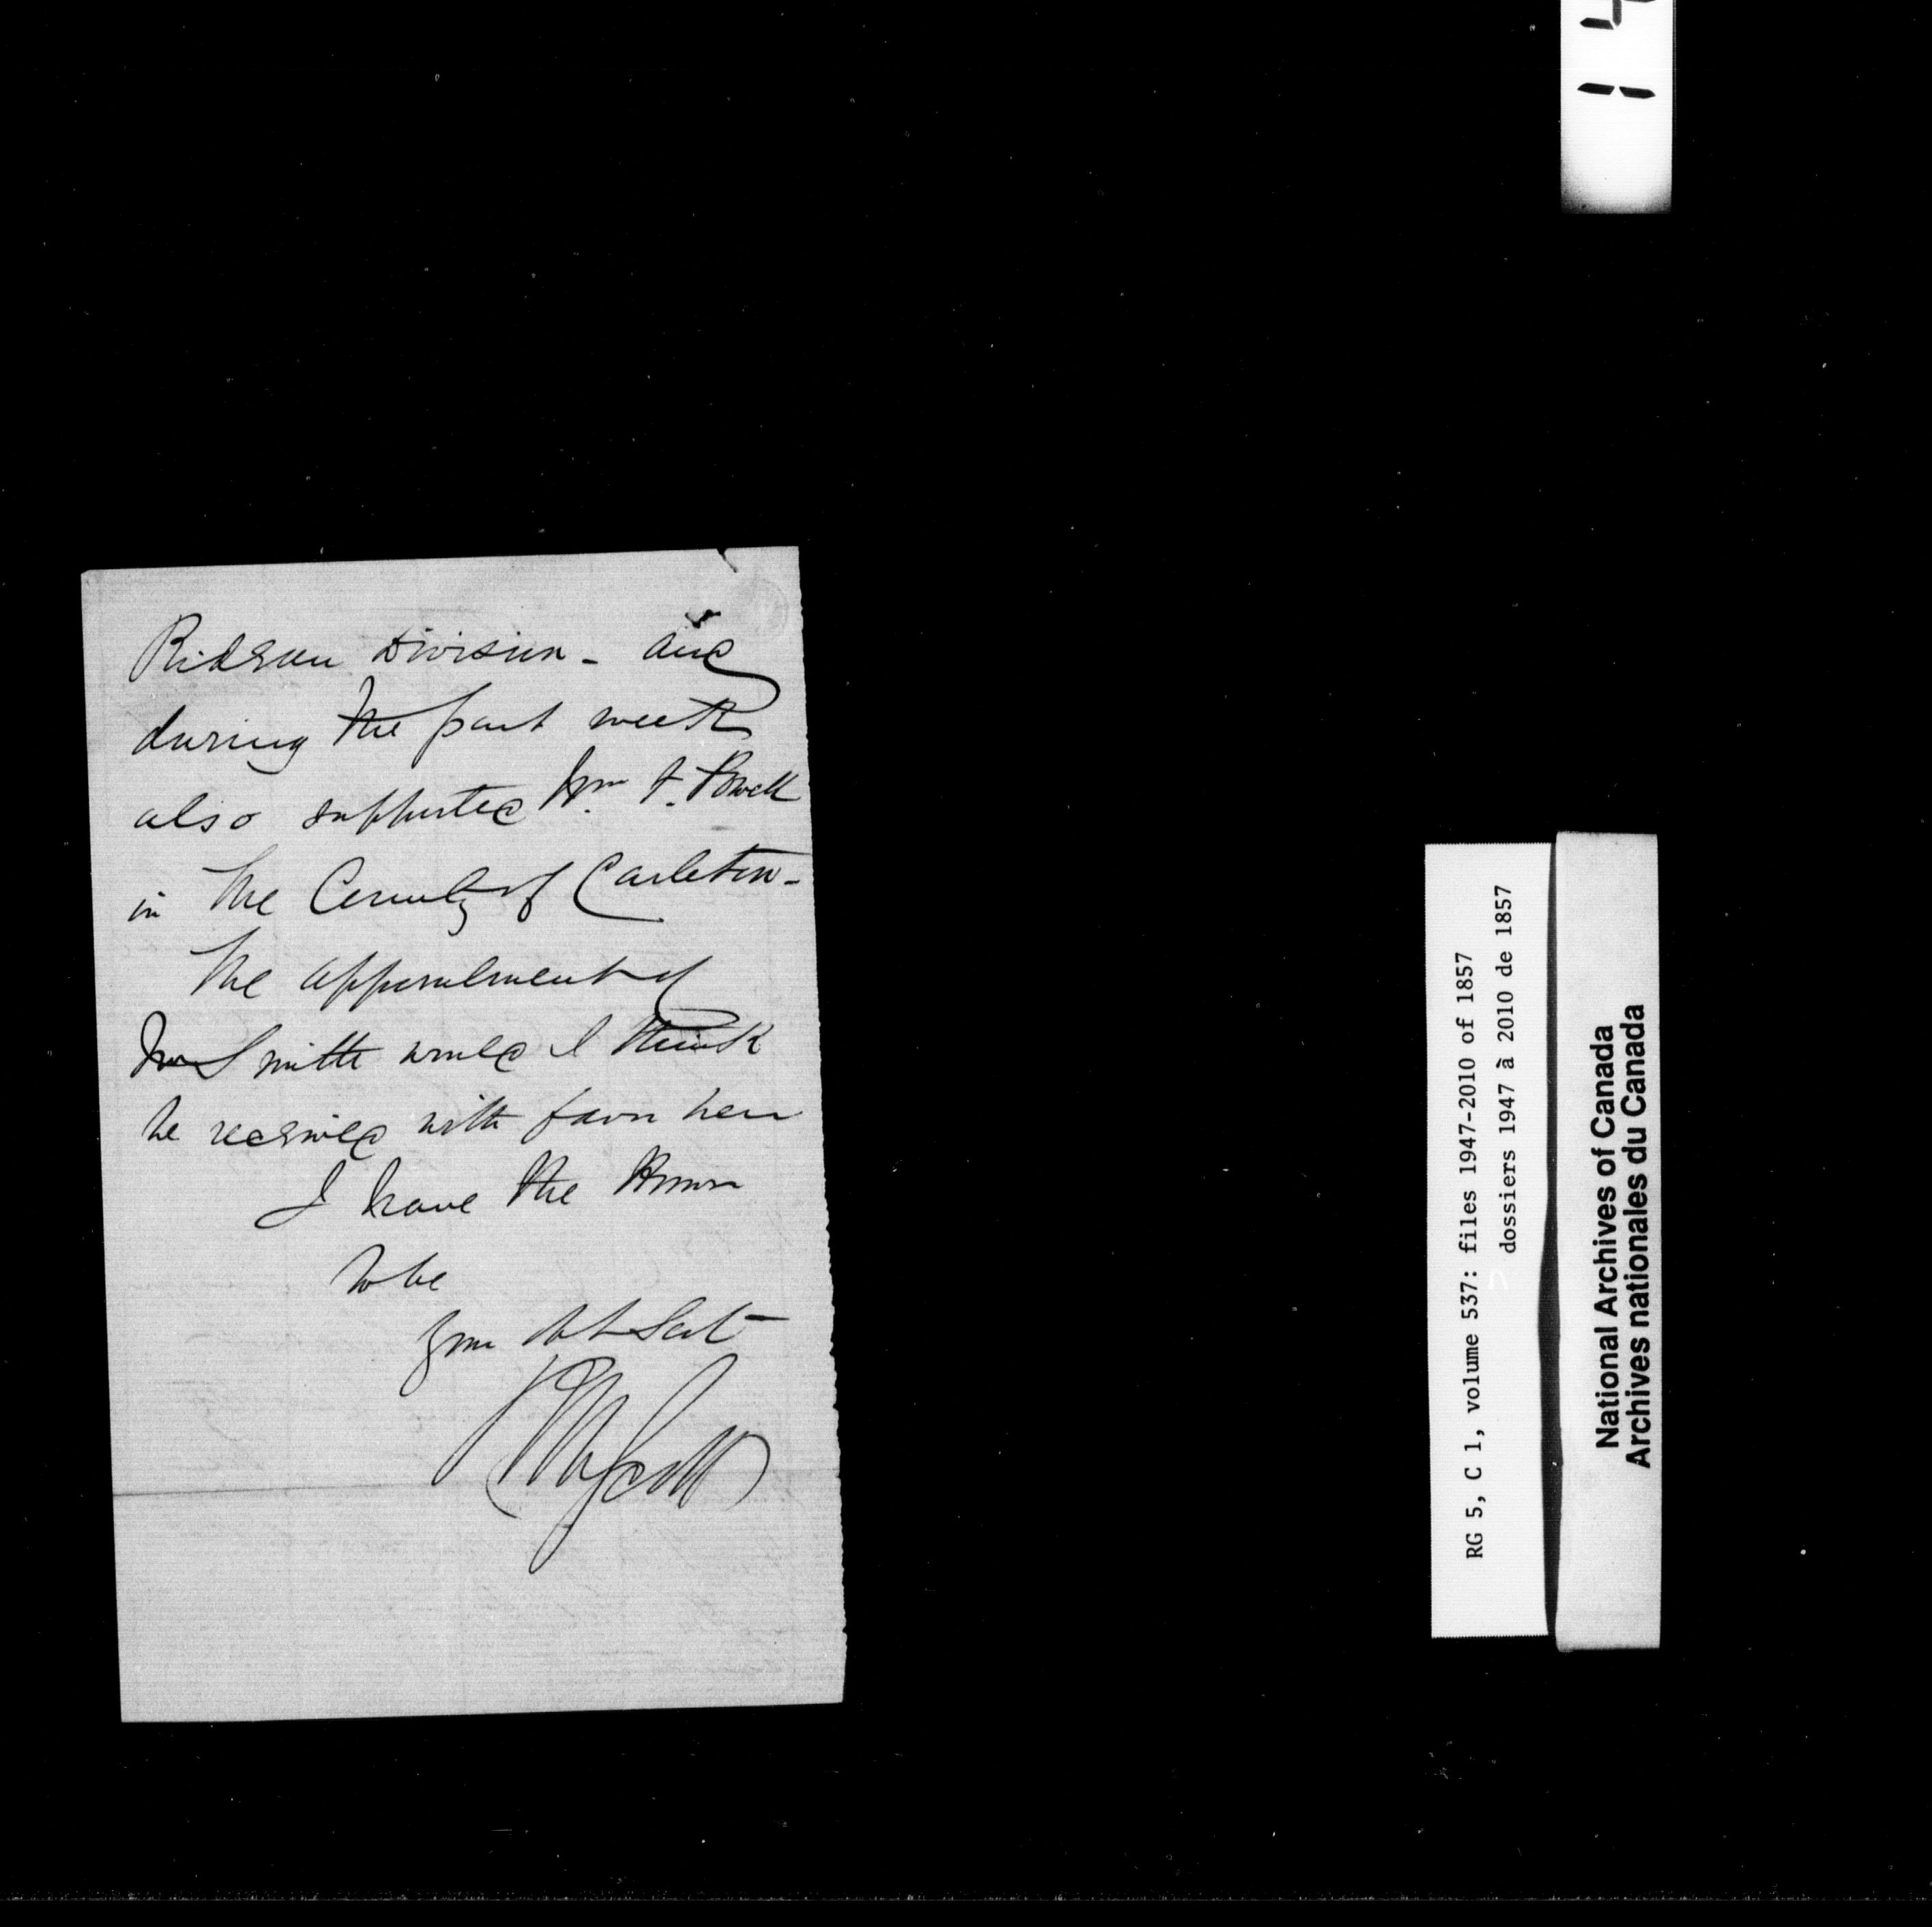 Rideau Division - and
during the past week
also supported Wm F. Powell
in the County of Carleton -
The appointment of
Mr Smith would I think
be received with favor here
I have the Honor
to be
your Obt Sert
R W Scott
RG 5, C 1, volume 537: files 1947-2010 of 1857
dossiers 1947 à 2010 de 1857
National Archives of Canada
Archives nationales du Canada